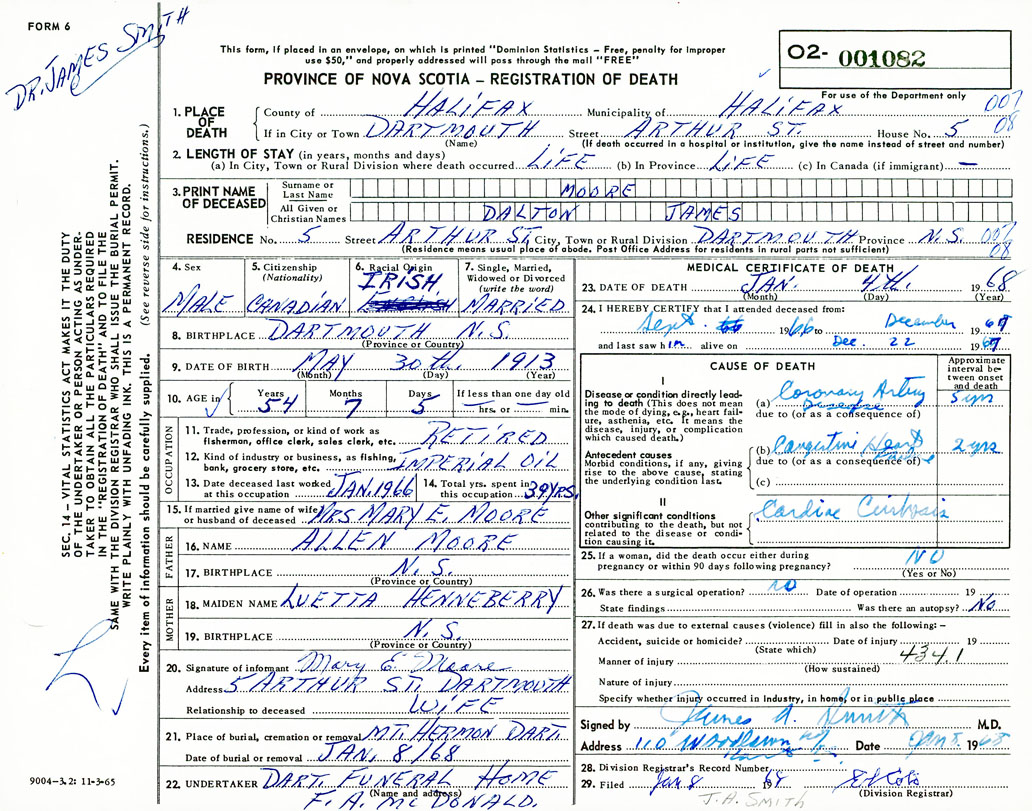 FORM 6
DR. JAMES SMITH
This form, if placed in an envelope, on which is printed "Dominion Statistics – Free, penalty for improper
use $50," and properly addressed will pass through the mail "FREE"
PROVINCE OF NOVA SCOTIA – REGISTRATION OF DEATH
O2- 001082
For use of the Department only
1. PLACE OF DEATH
County of HALIFAX Municipality of HALIFAX 007
If in City or Town DARTMOUTH Street ARTHUR ST. House No. 5 08
(Name) (If death occurred in a hospital or institution, give the name instead of street and number)
2. LENGTH OF STAY (in years, months and days)
(a) In City, Town or Rural Division where death occurred LIFE (b) In Province LIFE (c) In Canada (if immigrant) —
3. PRINT NAME OF DECEASED
Surname or Last Name MOORE
All Given or Christian Names DALTON JAMES
RESIDENCE No. 5 Street ARTHUR ST. City, Town or Rural Division DARTMOUTH Province N.S. 007
(Residence means usual place of abode. Post Office Address for residents in rural parts not sufficient) 08
4. Sex MALE
5. Citizenship (Nationality) CANADIAN
6. Racial Origin IRISH
7. Single, Married, Widowed or Divorced (write the word) MARRIED
8. BIRTHPLACE DARTMOUTH N.S.
(Province or Country)
9. DATE OF BIRTH MAY 30th. 1913
(Month) (Day) (Year)
10. AGE in Years 54 Months 7 Days 5 If less than one day old — hrs. or — min.
OCCUPATION
11. Trade, profession, or kind of work as fisherman, office clerk, sales clerk, etc. RETIRED
12. Kind of industry or business, as fishing, bank, grocery store, etc. IMPERIAL OIL
13. Date deceased last worked at this occupation JAN. 1966
14. Total yrs. spent in this occupation 39 YRS.
15. If married give name of wife or husband of deceased MRS MARY E. MOORE
FATHER
16. NAME ALLEN MOORE
17. BIRTHPLACE N.S.
(Province or Country)
MOTHER
18. MAIDEN NAME LUETTA HENNEBERRY
19. BIRTHPLACE N.S.
(Province or Country)
20. Signature of informant Mary E Moore
Address 5 ARTHUR ST. DARTMOUTH
Relationship to deceased WIFE
21. Place of burial, cremation or removal MT. HERMON DART.
Date of burial or removal JAN. 8/68
22. UNDERTAKER DART. FUNERAL HOME
(Name and address) F. A. McDONALD.
MEDICAL CERTIFICATE OF DEATH
23. DATE OF DEATH JAN. 4th. 1968
(Month) (Day) (Year)
24. I HEREBY CERTIFY that I attended deceased from:
Sept. 1966 to December 1967
and last saw him alive on Dec. 22 1967
CAUSE OF DEATH
Approximate interval between onset and death
I
Disease or condition directly leading to death (This does not mean the mode of dying, e.g., heart failure, asthenia, etc. It means the disease, injury, or complication which caused death.)
(a) Coronary Artery Disease 5 yrs
due to (or as a consequence of)
Antecedent causes
Morbid conditions, if any, giving rise to the above cause, stating the underlying condition last.
(b) Congestive Heart Failure 2 yrs
due to (or as a consequence of)
(c)
II
Other significant conditions
contributing to the death, but not related to the disease or condition causing it.
Cardiac Cirrhosis
25. If a woman, did the death occur either during
pregnancy or within 90 days following pregnancy? NO
(Yes or No)
26. Was there a surgical operation? NO Date of operation 19
State findings Was there an autopsy? No
27. If death was due to external causes (violence) fill in also the following: –
Accident, suicide or homicide? Date of injury 19
(State which) 434.1
Manner of injury
(How sustained)
Nature of injury
Specify whether injury occurred in Industry, in home, or in public place
Signed by James A. Smith M.D.
Address 110 Woodlawn Rd Date Jan 5. 1968
28. Division Registrar's Record Number
29. Filed Jan 8 1968
(Division Registrar)
J. A. SMITH
SEC. 14 – VITAL STATISTICS ACT MAKES IT THE DUTY
OF THE UNDERTAKER OR PERSON ACTING AS UNDER-
TAKER TO OBTAIN ALL THE PARTICULARS REQUIRED
IN THE "REGISTRATION OF DEATH" AND TO FILE THE
SAME WITH THE DIVISION REGISTRAR WHO SHALL ISSUE THE BURIAL PERMIT.
WRITE PLAINLY WITH UNFADING INK. THIS IS A PERMANENT RECORD.
Every item of information should be carefully supplied. (See reverse side for instructions.)
9004-3.2: 11-3-65